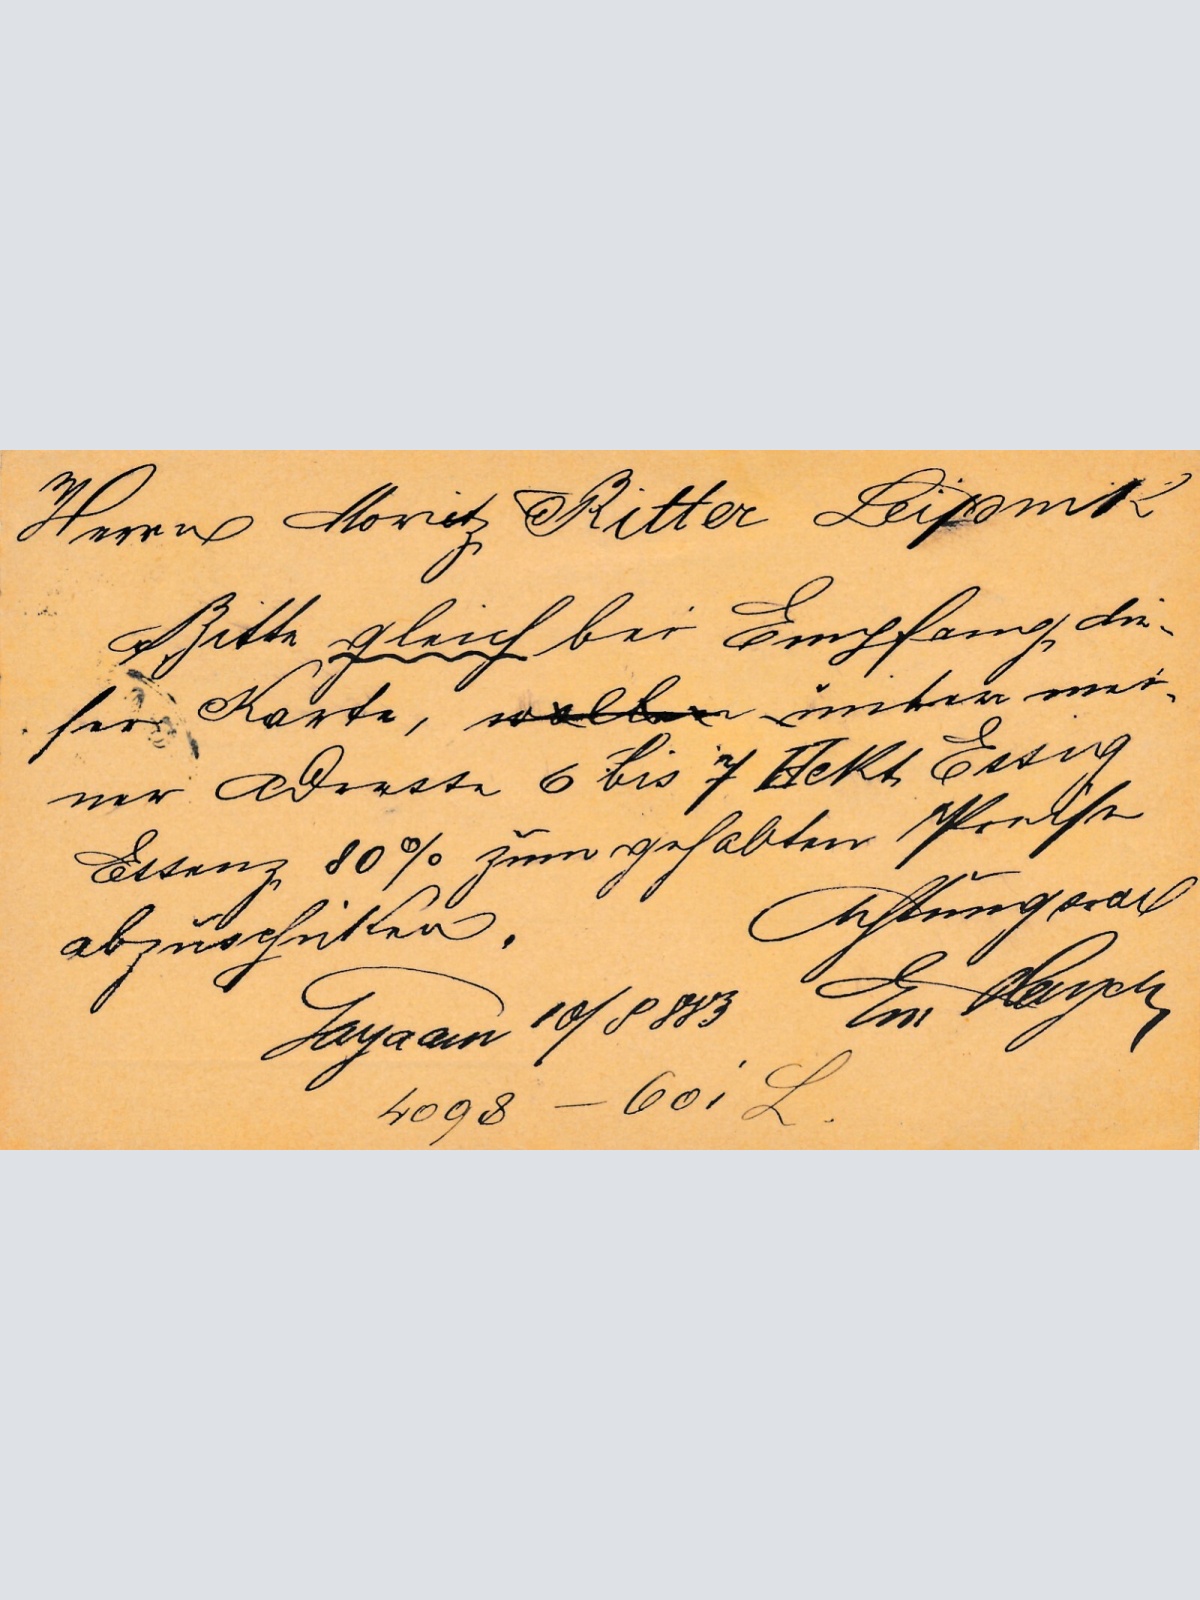 Herrn Moritz Ritter Leipnik
Bitte gleich bei Empfang die-
ser Karte, wollen unter mei-
ner Adresse 6 bis 7 Hekt Essig
Essenz 80% zum gehabten Preise
abzuschiken.
Achtungsvoll
10/8 883 Em
4098 — 60i L.